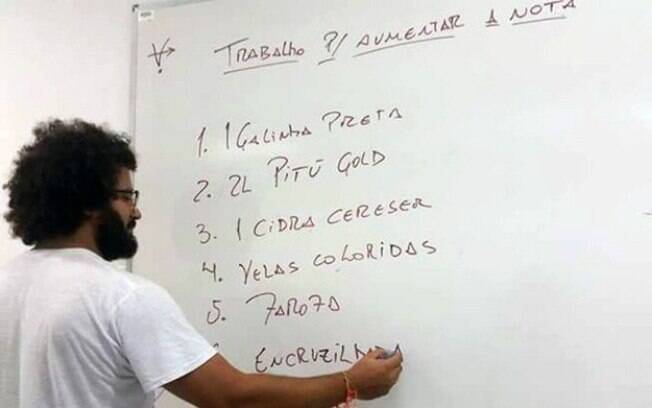 TRABALHO P/ AUMENTAR A NOTA
1. 1 GALINHA PRETA
2. 2L PITÚ GOLD
3. 1 CIDRA CERESER
4. VELAS COLORIDAS
5. FAROFA
ENCRUZILHADA